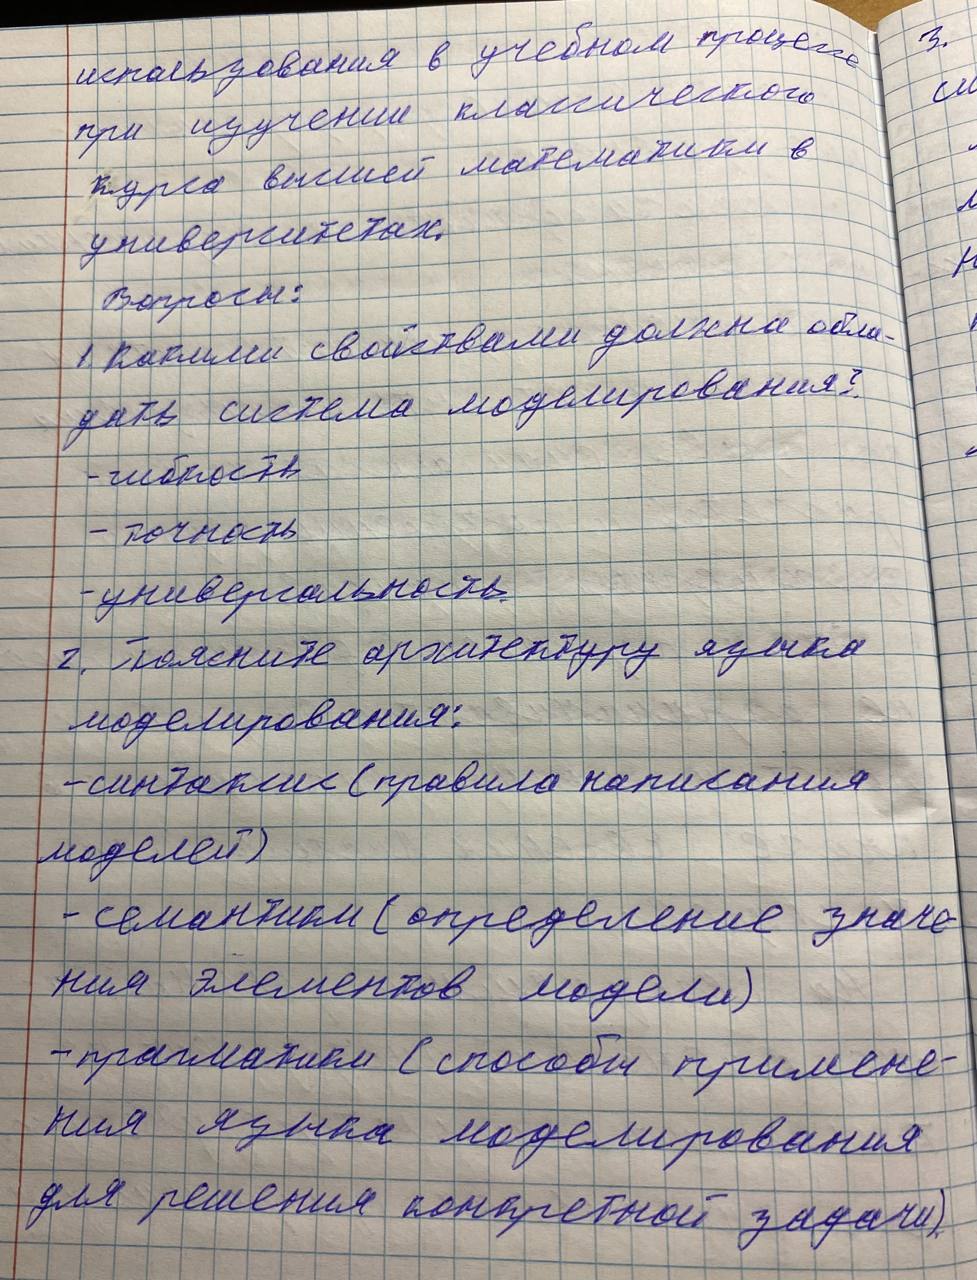 использования в учебном процессе
при изучении классического
курса высшей математики в
университетах.
Вопросы:
1. Какими свойствами должна обла-
дать система моделирования?
- гибкость
- точность
- универсальность.
2. Поясните архитектуру языка
моделирования:
- синтаксис (правила написания
моделей)
- семантики (определение значе-
ния элементов модели)
- прагматики (способы примене-
ния языка моделирования
для решения конкретной задачи).
3.